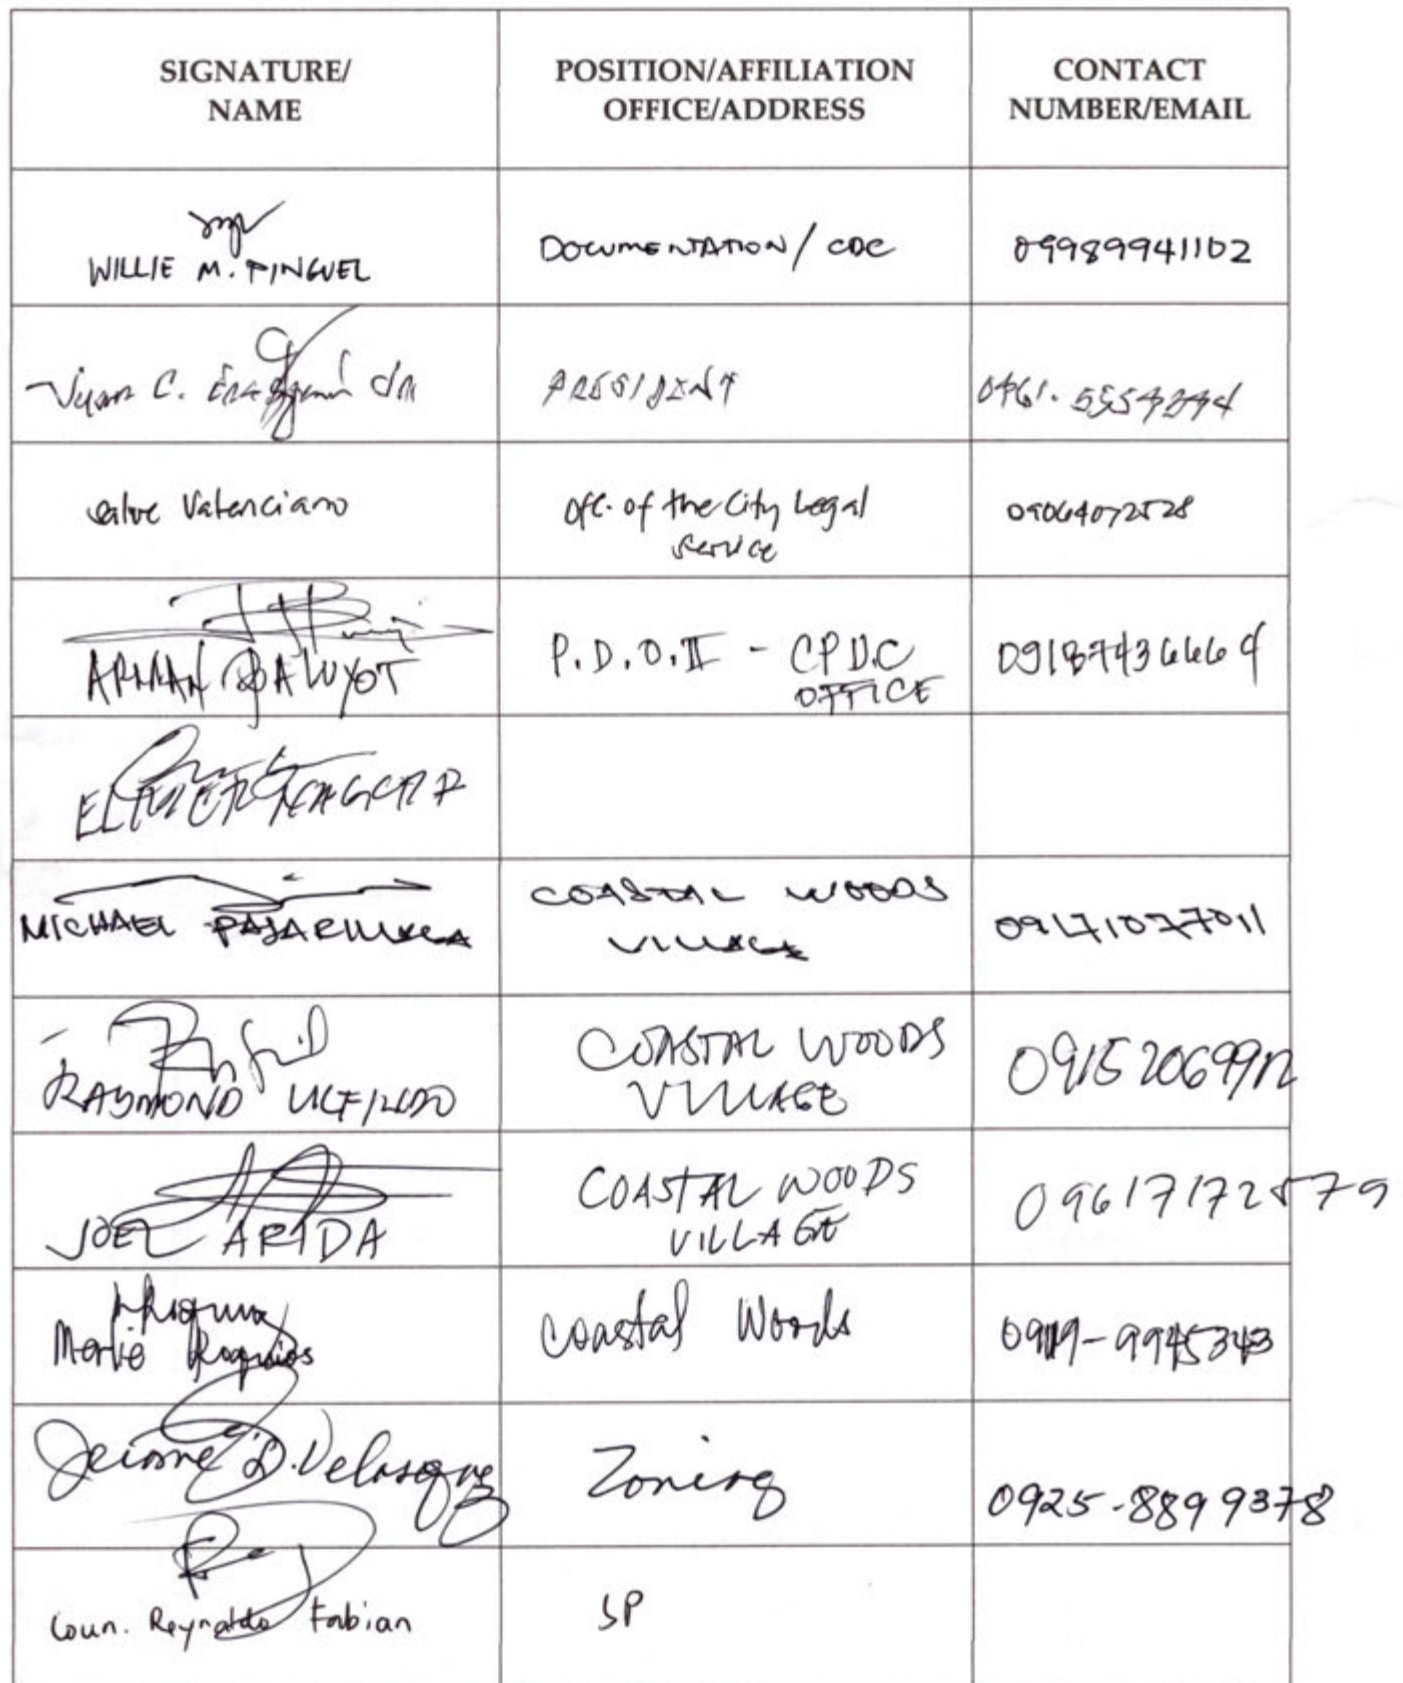 SIGNATURE/
NAME
POSITION/AFFILIATION
OFFICE/ADDRESS
CONTACT
NUMBER/EMAIL
WILLIE M. PINGUEL
DOCUMENTATION/ CDC
09989941102
Juan C.
PRESIDENT
Salve Valenciano
Ofc. of the City Legal
Service
09064072528
ARMAN BALUYOT
P.D.O.II - CPDC
OFFICE
09187436664
ELMER
MICHAEL PAJARILLAGA
COASTAL WOODS
VILLAGE
09171077011
RAYMOND
COASTAL WOODS
VILLAGE
JOEL ARIDA
COASTAL WOODS
VILLAGE
09617172579
Merlie
Coastal Woods
D. Velasquez
Zoning
0925-8899378
Coun. Reynaldo Fabian
SP